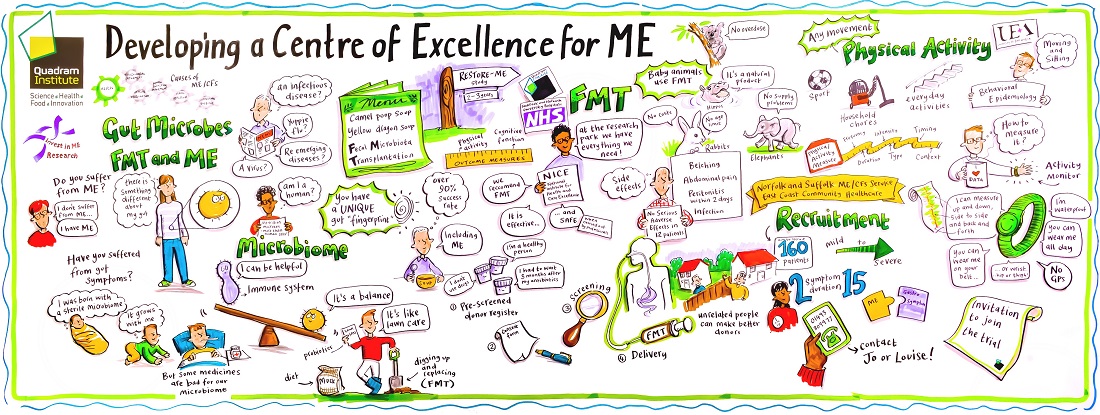 Developing a Centre of Excellence for ME
Quadram
Institute
Science · Health ·
Food · Innovation
Invest in ME
Research
Causes of
ME/CFS
an infectious
disease?
Yuppie
flu?
Re emerging
diseases?
A virus?
Gut Microbes
FMT and ME
Do you suffer
from ME?
I don't suffer
from ME...
I have ME
there is
something
different
about
my gut
am I a
human?
Have you suffered
from gut
symptoms?
I was born with
a sterile microbiome
it grows
with me
But some medicines
are bad for our
microbiome
Microbiome
I can be helpful
Immune system
It's a balance
It's like
lawn care
probiotics
diet
digging up
and
replacing
(FMT)
Menu
Camel poop soup
Yellow dragon soup
Fecal Microbiota
Transplantation
RESTORE-ME
study
2-3 years
NHS
FMT
Physical
activity
Cognitive
function
OUTCOME MEASURES
You have
a UNIQUE
gut "fingerprint"
over
90%
success
rate
Including
ME
SOUP
at the research
park we have
everything we
need!
NICE
We
recommend
FMT
It is
effective...
... and SAFE
I'm a healthy
person
I don't
use drugs
I had to wait
3 months after
my antibiotics
① Pre-screened
donor register
②
CONSENT
FORM
③ Screening
④ Delivery
FMT
unrelated people
can make better
donors
Side
effects
No Serious
Adverse
Effects in
12 patients
Belching
Abdominal pain
Peritonitis
within 2 days
Infection
Baby animals
use FMT
No overdose
It's a natural
product
Hippos
No cuts
No age
limit
Rabbits
No supply
problems
Elephants
Any movement
Physical Activity
UEA
Moving
and
Sitting
Sport
Household
chores
everyday
activities
Behavioral
Epidemiology
Physical
Activity
Measure
Frequency
Intensity
Timing
Duration
Type
Context
How to
measure
it?
DATA
Activity
Monitor
I can measure
up and down,
side to side
and back and
forth
I'm
waterproof
you can
wear me
all day
You can
wear me
on your
belt...
... or wrist
No
GPS
Norfolk and Suffolk ME/CFS Service
East Coast Community Healthcare
Recruitment
160
patients
mild
to
severe
2 symptom
duration 15
ME
contact
Jo or Louise!
Invitation
to join
the trial